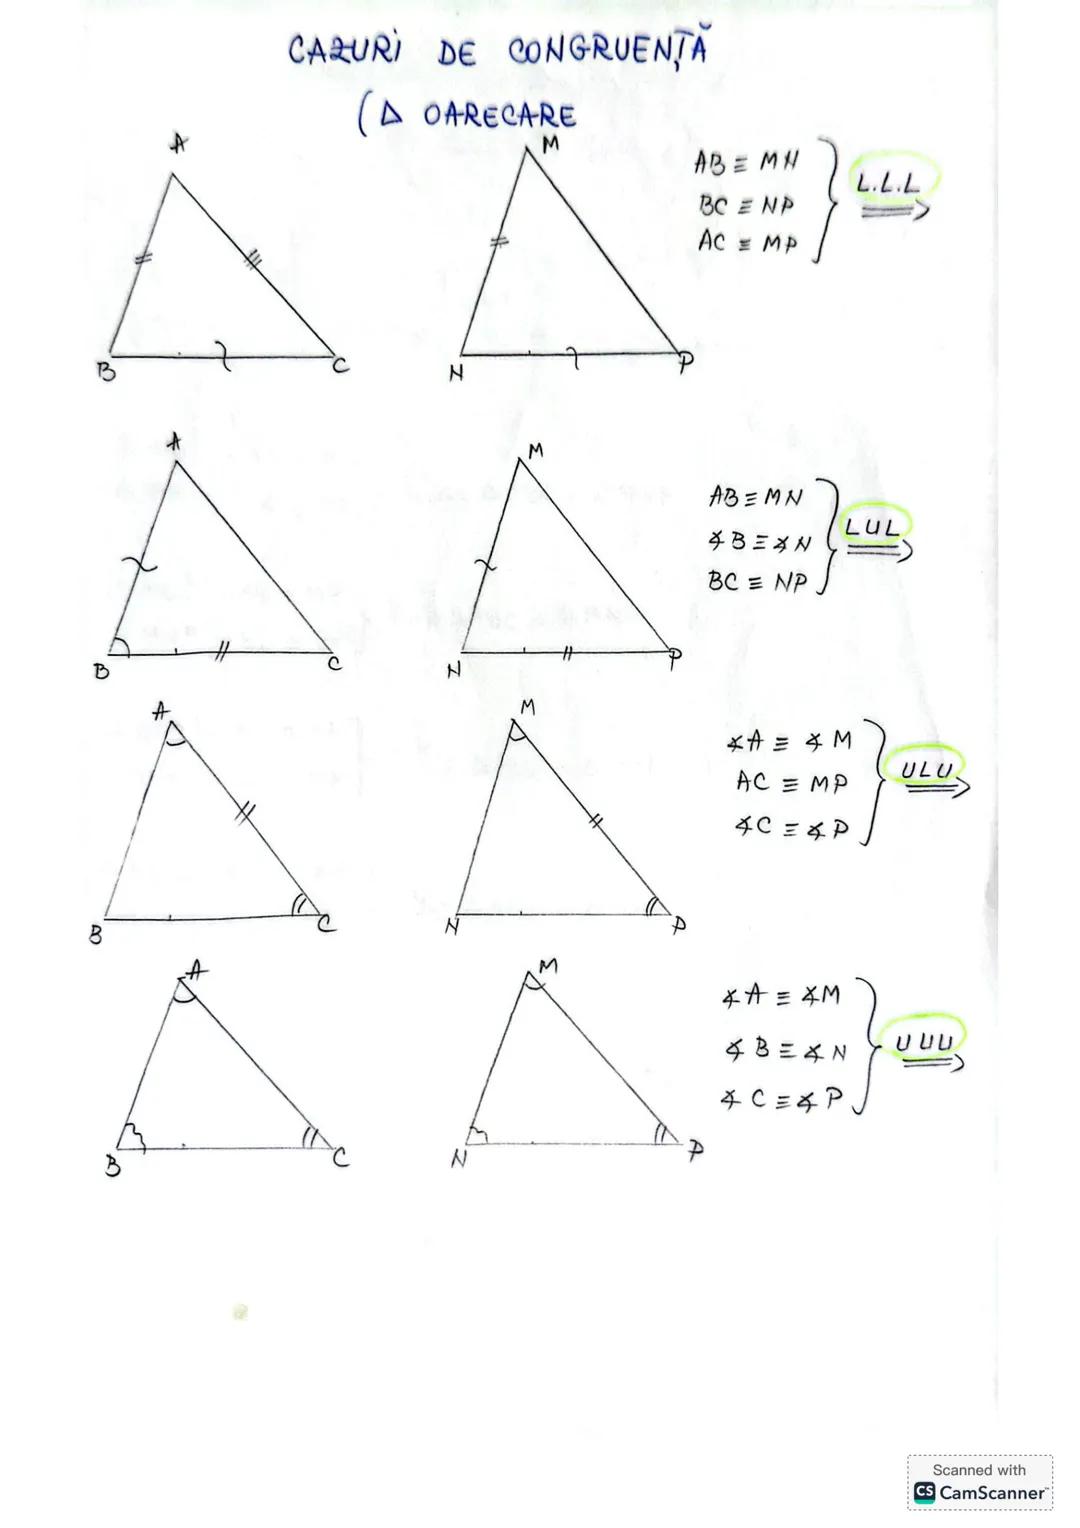 CAZURI DE CONGRUENȚĂ
(Δ OARECARE
A
M
AB ≡ MN
BC ≡ NP
AC ≡ MP
L.L.L
B
C
N
P
A
M
AB ≡ MN
∢B ≡ ∢N
BC ≡ NP
LUL
B
C
N
P
A
M
∢A ≡ ∢M
AC ≡ MP
∢C ≡ ∢P
ULU
B
C
N
P
A
M
∢A ≡ ∢M
∢B ≡ ∢N
∢C ≡ ∢P
UUU
B
C
N
P
Scanned with
CS CamScanner